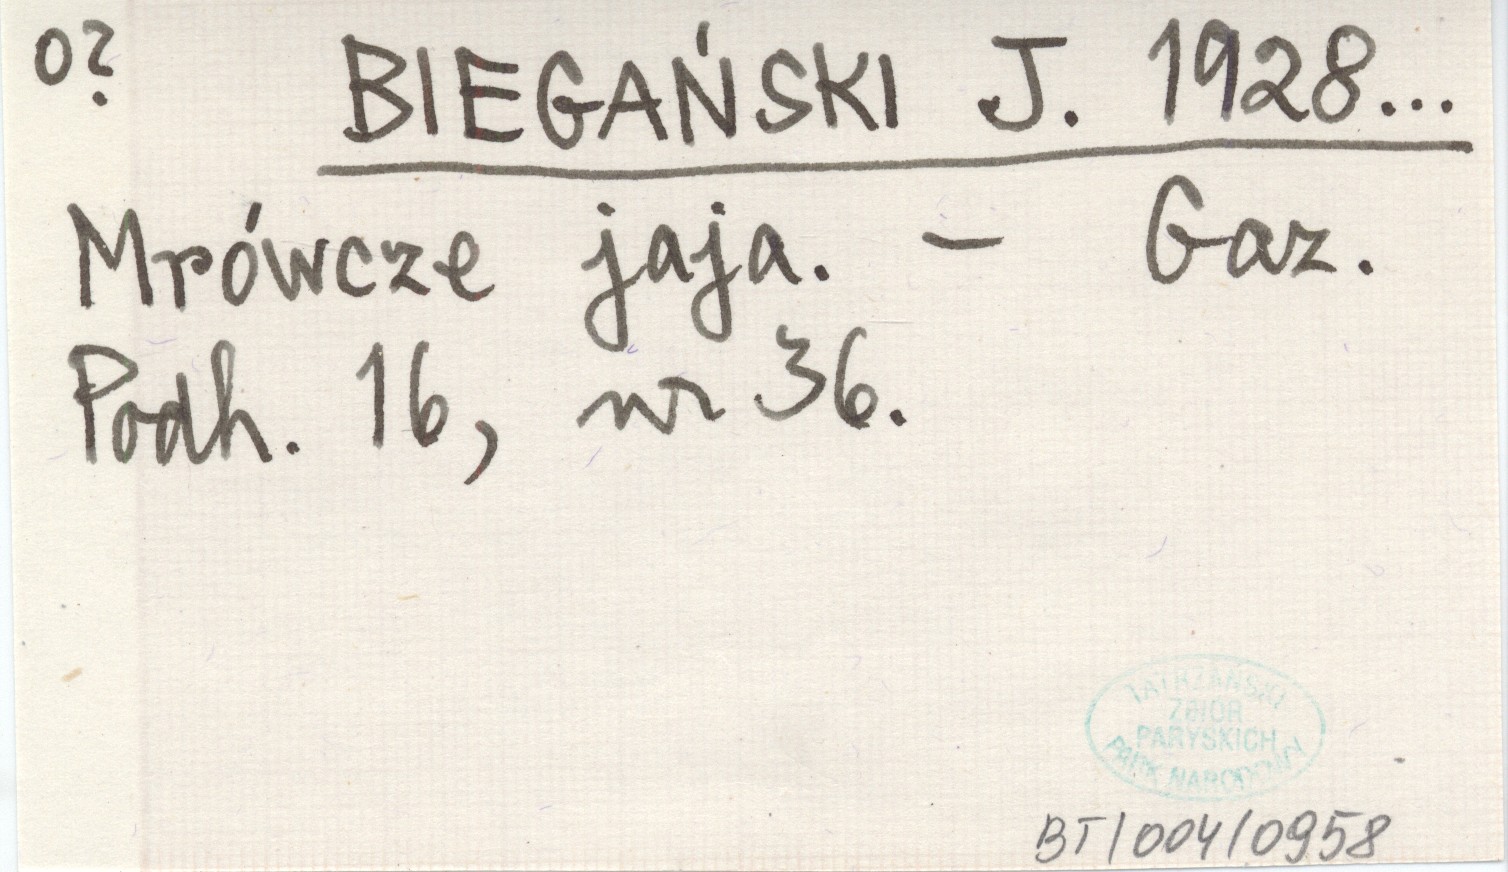 o?
BIEGAŃSKI J. 1928...
Mrówcze jaja. – Gaz.
Podh. 16, nr 36.
TATRZAŃSKI
ZBIÓR
PARYSKICH
PARK NARODOWY
BT/004/0958